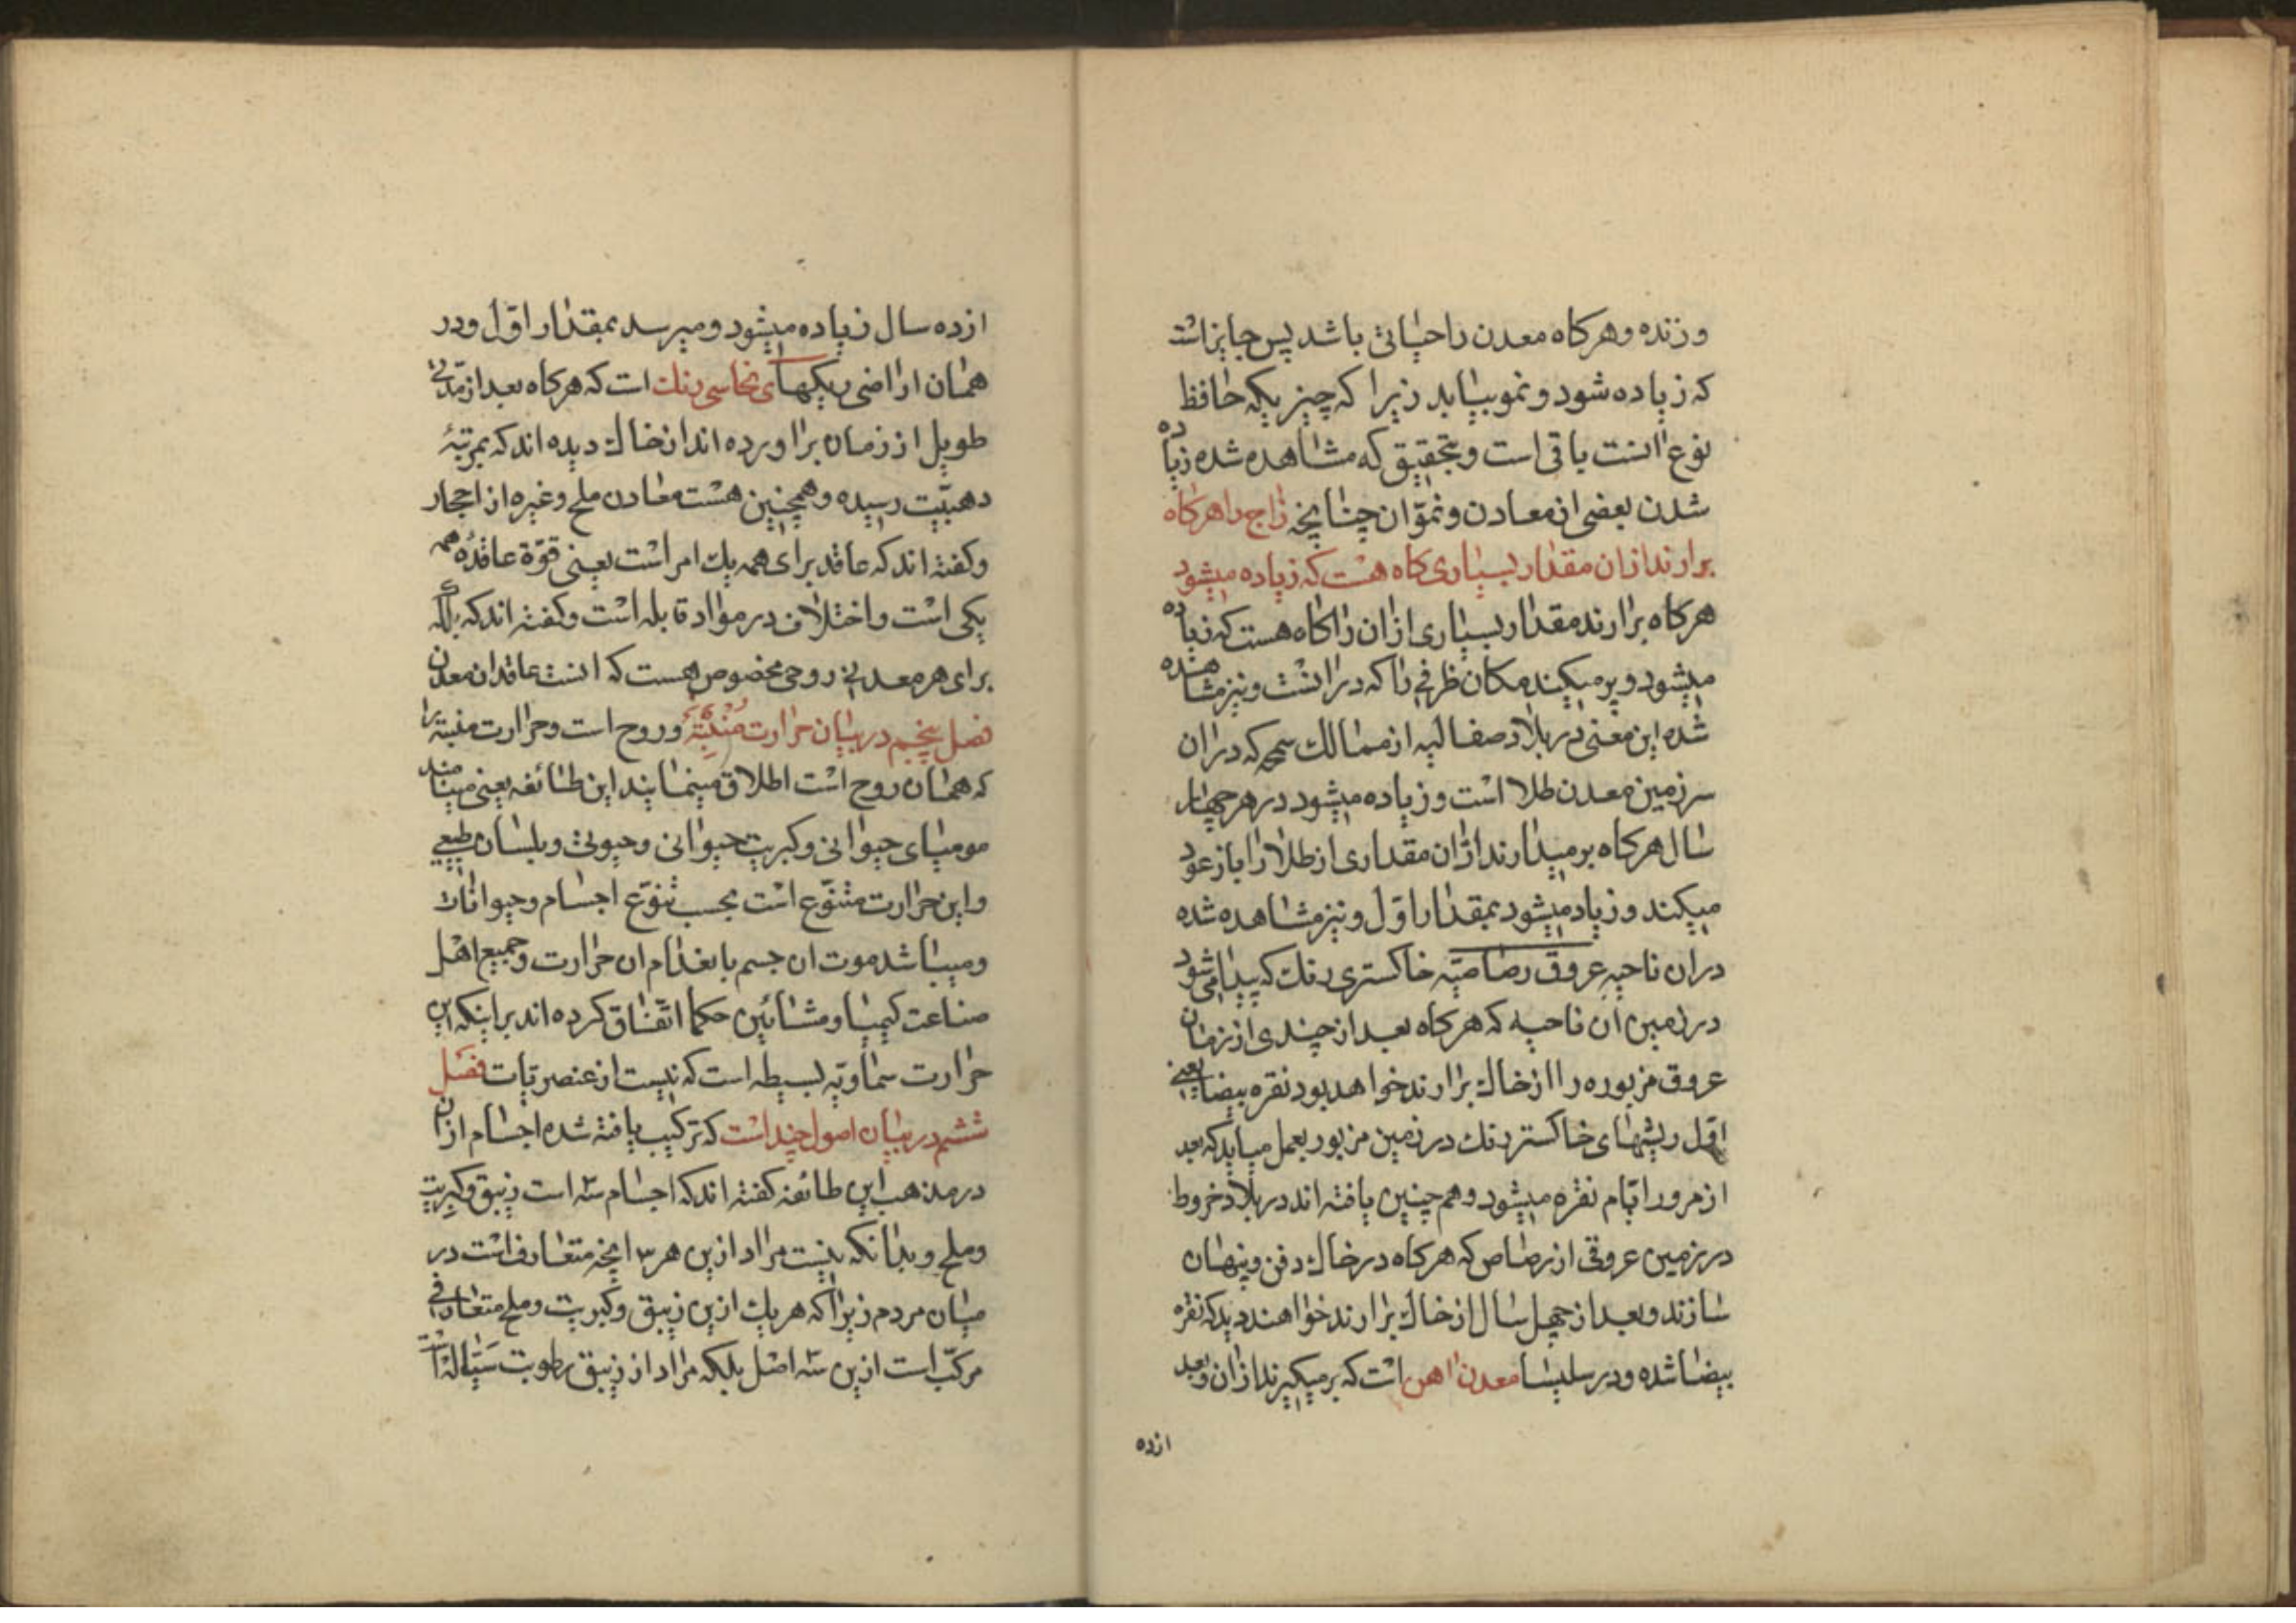 و زنده و هرکاه معدن را حیاتی باشد پس جایز است
که زیاده شود و نمو بیابد زیرا که چیزیکه حافظ
نوع انست باقی است و بتحقیق که مشاهده شده زیاده
شدن بعضی از معادن و نموّ ان چنانچه زاج را هرکاه
برارند ازان مقدار بسیاری کاه هست که زیاده میشود
هرکاه برارند مقدار بسیاری ازان زا کاه هست که زیاده
میشود و پر میکند مکان ظرفی را که در انست و نیز مشاهده
شده این معنی در بلاد صفالیه از ممالک که دران
سرزمین معدن طلا است و زیاده میشود در هر چهار
سال هرکاه برمیدارند ازان مقداری از طلا را باز عود
میکند و زیاد میشود بمقدار اوّل و نیز مشاهده شده
دران ناحیه عروق رصاصیّه خاکستری رنک که پیدا میشود
در زمین ان ناحیه که هرکاه بعد از چندی از زمان
عروق مزبوره را از خاک برارند خواهد بود نقره بیضا یعنی
اوّل ریشهای خاکستر رنک در زمین مزبور بعمل میاید که بعد
از مرور ایّام نقره میشود و هم چنین یافته اند در بلاد خروط
در زمین عروقی از رصاص که هرکاه در خاک دفن و پنهان
سازند و بعد از چهل سال از خاک برارند خواهند دید که نقره
بیضا شده و در سلیسا معدن اهن است که برمیکیرند ازان و بعد
ازده
ازده سال زیاده میشود و میرسد بمقدار اوّل و در
همان اراضی ریکهای نحاسی رنک است که هرکاه بعد از مدّتی
طویل از زمان براورده اند از خاک دیده اند که بمرتبهٔ
دهبیّت رسیده و همچنین هست معادن ملح و غیره از احجار
و کفته اند که عاقد برای همه یک امر است یعنی قوّة عاقدهٔ همه
یکی است و اختلاف در مواد قابله است و کفته اند که بلکه
برای هر معدنی روحی مخصوص هست که انست عاقد ان معدن
فصل پنجم در بیان حرارت مُنْبِتَهٔ و روح است و حرارت منبته را
که همان روح است اطلاق مینمایند این طائفه یعنی مینامند
مومیای حیوانی و کبریت حیوانی و حیوتی و بلسان طبیعی
و این حرارت متنوّع است بحسب تنوّع اجسام و حیوانات
و میباشد موت ان جسم بانعدام ان حرارت و جمیع اهل
صناعت کیمیا و مشائین حکما اتّفاق کرده اند بر اینکه این
حرارت سماویّه بسیطه است که نیست از عنصریّات فصل
ششم در بیان اصول چند است که ترکیب یافته شده اجسام ازان
در مذهب این طائفه کفته اند که اجسام سه است زیبق و کبریت
و ملح و بدانکه نیست مراد ازین هر ۳ انچه متعارف است در
میان مردم زیرا که هریک ازین زیبق و کبریت و ملح متعارفی
مرکّب است ازین سه اصل بلکه مراد از زیبق رطوبت سَیّاله است